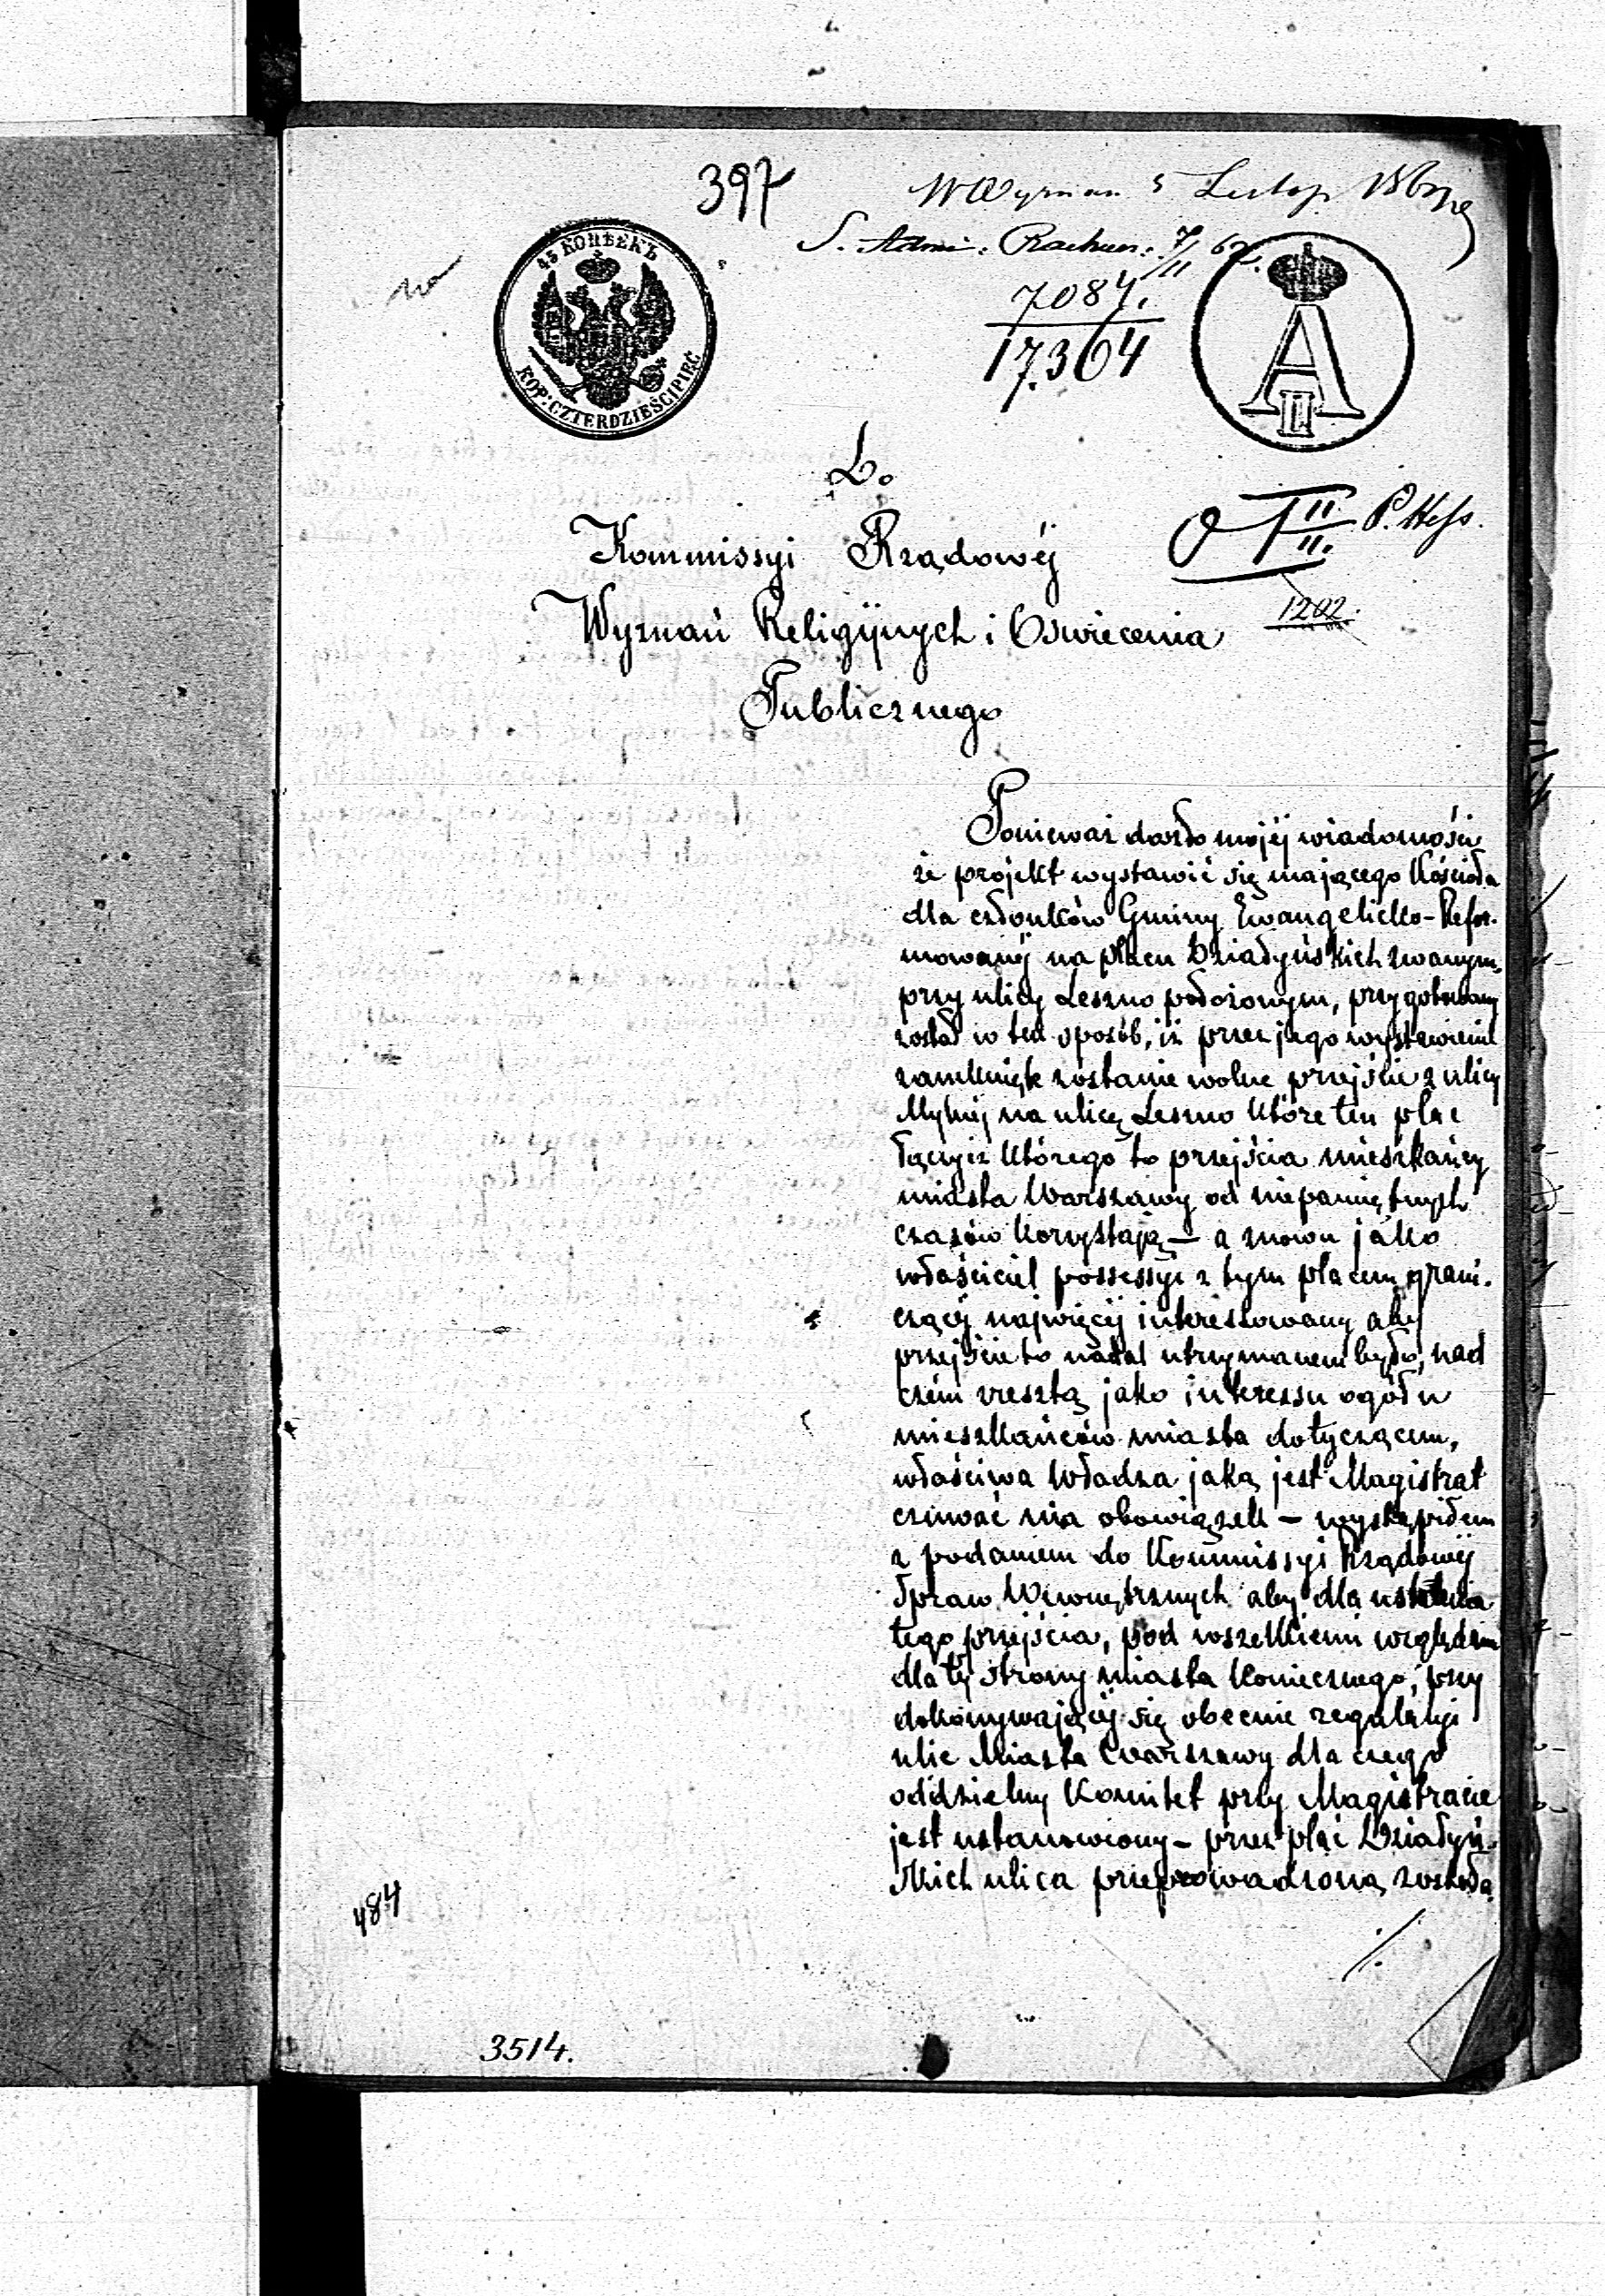 397
W Wyznan 5 Listop 1862
S. Admi: Rachun: 7/11 62.
45 КОПѢЕКЪ
KOP: CZTERDZIEŚCI PIĘĆ
A II
7084.
17.364
Do
P. Hess.
Kommissyi Rządowéj
1202.
Wyznań Religijnych i Oswiecenia
Publicznego
Ponieważ doszło mojéj wiadomości
że projekt wystawić się mającego Kościoła
dla członków Gminy Ewangelicko-Refor-
mowanéj na placu Działyńskich zwanym,
przy ulicy Leszno położonym, przygotowany
został w ten sposób, iż przez jego wystawienie
zamknięte zostanie wolne przejście z ulicy
Mylnéj na ulicę Leszno które ten plac
łączy i z którego to przejścia mieszkańcy
miasta Warszawy od niepamiętnych
czasów korzystają – a znowu jako
właściciel possessyi z tym placem grani-
czącéj najwięcéj interessowany aby
przejście to nadal utrzymanem było, nad
czém zresztą jako interessu ogółu
mieszkańców miasta dotyczącem,
właściwa Władza jaką jest Magistrat
czuwać ma obowiązek – wystąpiłem
z podaniem do Kommissyi Rządowéj
Spraw Wewnętrznych aby dla ustalenia
tego przejścia, pod wszelkiemi względami
dla téj strony miasta koniecznego, przy
dokonywającéj się obecnie regulacyi
ulic Miasta Warszawy dla czego
oddzielny Komitet przy Magistracie
jest ustanowiony – przez plac Działyń-
skich ulica przeprowadzoną została
484
./.
3514.